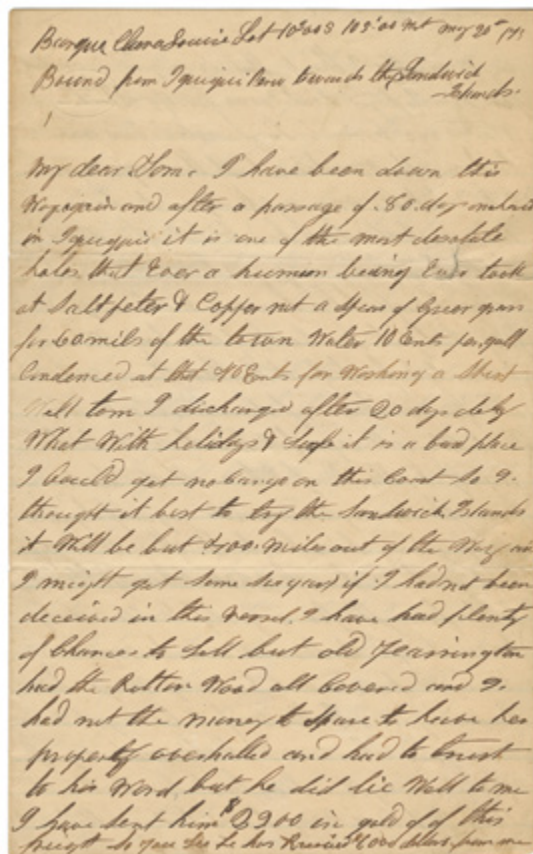 Barque Clara Louise Lat 10°00 S 103°00 Wt may 20th
Bound from Iquiqui Peru towards the Sandwich
Islands.
My dear Tom. I have been down this
Way again and after a passage of 80 days
in Iquiqui it is one of the most desolate
holes that Ever a human being took
at Saltpeter & Copper not a Spear of Green grass
for 60 mils of the town Water 10 Cents per gall
Condenced at that 40 Cents for Washing a Shirt
Well tom I discharged after 20 days delay
What With holidays & Surfe it is a bad place
I Could get no Cargo on this Coast So I
thought it best to try the Sandwich Islands
it Will be but miles out of the Way and
I might get some Sugar if I had not been
deceived in this vessel. I have had plenty
of Chances to Sell but old
had the Rotton Wood all Covered and I
had not the money to Spare to have her
properly overhalled and had to trust
to his Word but he did lie Well to me
I have Sent him $ in gold of of this
freight So you See he has Received dollars from me